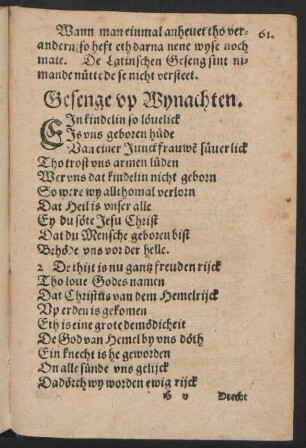 Wann man einmal anhevet tho ver- 61.
andern, so heft eth darna nene wyse noch
mate. De Latinschen Geseng sint ni-
mande nütte de se nicht versteet.
Gesenge vp Wynachten.
EIn kindelin so löuelick
Is vns geboren hüde
Van einer Junckfrauwē süuerlick
Tho trost vns armen lüden
Wer vns dat kindelin nicht geborn
So were wy allthomal verlorn
Dat Heil is vnser alle
Ey du söte Jesu Christ
Dat du Mensche geboren bist
Behöde vns vor der helle.
2 De thijt is nu gantz freuden rijck
Tho loue Godes namen
Dat Christus van dem Hemelrijck
Vp erden is gekomen
Eth is eine grote demödicheit
De God van Hemel by vns döth
Ein knecht is he geworden
On alle sünde vns gelijck
Dadörch wy worden ewig rijck
H v Drecht